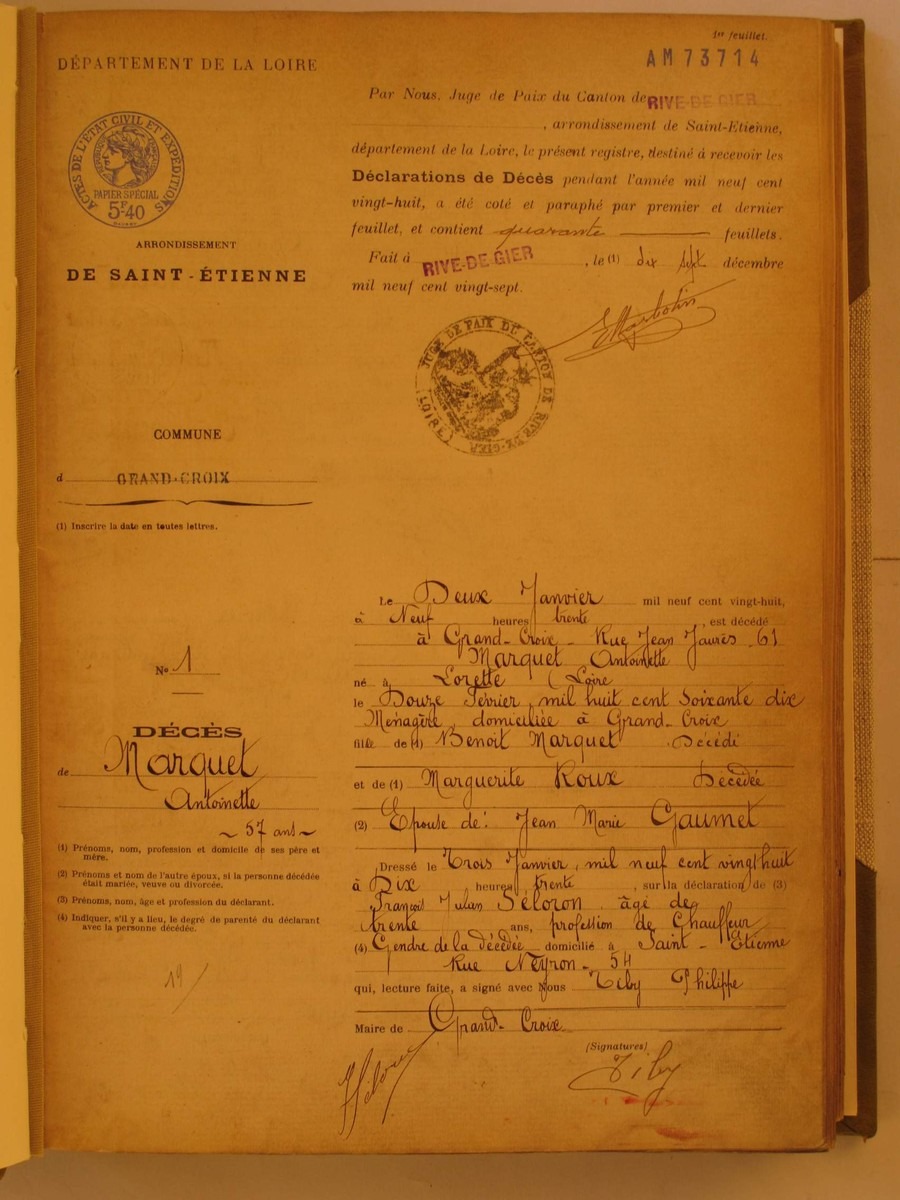 1er feuillet.
AM 73714
DÉPARTEMENT DE LA LOIRE
ACTES DE L'ÉTAT CIVIL ET EXPÉDITIONS
PAPIER SPÉCIAL
5F.40
ARRONDISSEMENT
DE SAINT-ÉTIENNE
COMMUNE
d GRAND-CROIX
(1) Inscrire la date en toutes lettres.
Par Nous, Juge de Paix du Canton de RIVE-DE-GIER
, arrondissement de Saint-Etienne,
département de la Loire, le présent registre, destiné à recevoir les
Déclarations de Décès pendant l'année mil neuf cent
vingt-huit, a été coté et paraphé par premier et dernier
feuillet, et contient quarante feuillets.
Fait à RIVE-DE-GIER, le (1) dix sept décembre
mil neuf cent vingt-sept.
JUGE DE PAIX DU CANTON DE RIVE-DE-GIER
(LOIRE)
No 1
DÉCÈS
de Marquet
Antoinette
~ 57 ans ~
(1) Prénoms, nom, profession et domicile de ses père et
mère.
(2) Prénoms et nom de l'autre époux, si la personne décédée
était mariée, veuve ou divorcée.
(3) Prénoms, nom, âge et profession du déclarant.
(4) Indiquer, s'il y a lieu, le degré de parenté du déclarant
avec la personne décédée.
19
Le Deux Janvier mil neuf cent vingt-huit,
à Neuf heures trente, est décédé
à Grand-Croix - Rue Jean Jaurès - 61
Marquet Antoinette
né à Lorette (Loire
le Douze Février, mil huit cent soixante dix
Ménagère, domiciliée à Grand-Croix
fille de (1) Benoit Marquet Décédé
et de (1) Marguerite Roux Décédée
(2) Epouse de: Jean Marie Gaumet
Dressé le Trois Janvier, mil neuf cent vingt huit
à Dix heures trente, sur la déclaration de (3)
François âgé de
trente ans, profession de Chauffeur
(4) Gendre de la décédée domicilié à Saint-Etienne
Rue Neyron - 54
qui, lecture faite, a signé avec Nous Tiby Philippe
Maire de Grand-Croix
(Signatures)
Tiby